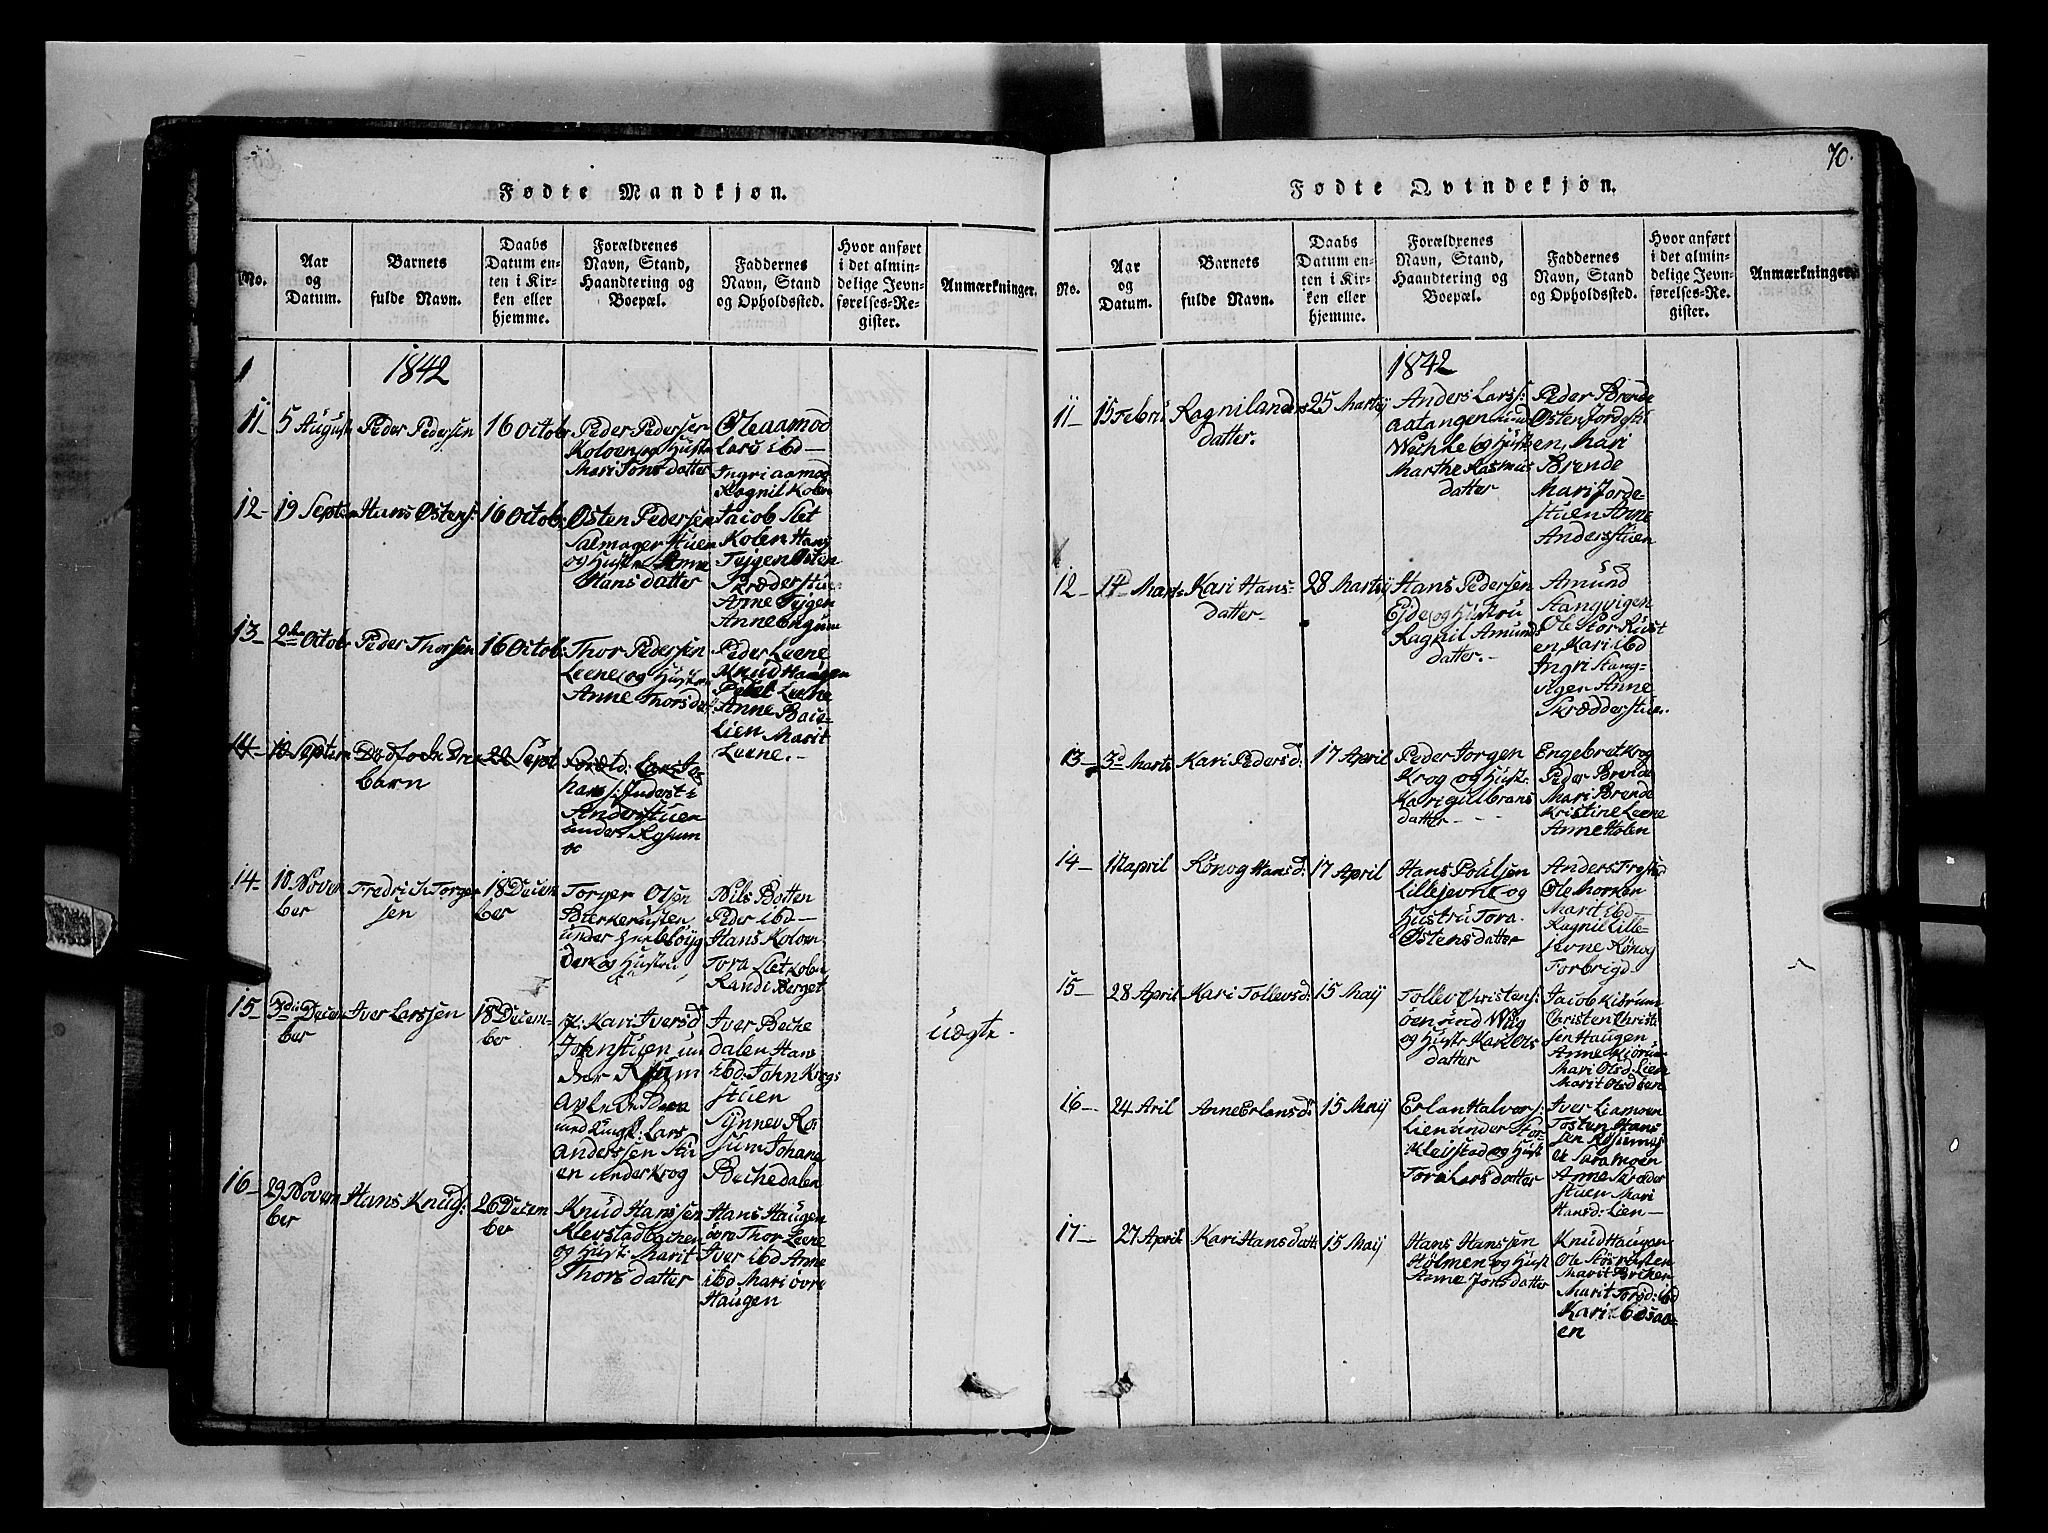 70.
Fødte Mandkjøn.
No.
Aar
og
Datum.
Barnets
fulde Navn.
Daabs
Datum en-
ten i Kir-
ken eller
hjemme.
Forældrenes
Navn, Stand,
Haandtering og
Boepæl.
Faddernes
Navn, Stand
og Opholdssted.
Hvor anført
i det almin-
delige Jevn-
førelses-Re-
gister.
Anmærkninger.
1842
11-
5 August
Peder Pedersen
16 Octob:
Peder Pedersen
Kolven og Hustr
Mari Jonsdatter
Ole aamod
Lars ibd-
Ingri aamod
Ragnil Kolen
12-
19 Septem
Hans Østens:
16 Octob:
Østen Pedersen
Salmager stuen
og Hustr Anne
Hansdatter
Jacob Slet
Kolen Hans
Tejgen Østen
Skrædderstue:
Anne Tejgen
13-
Octob
Peder Thorsen
16 Octob:
Thor Pedersen
Leene og Hustr
Anne Thorsda
Peder Leene
Knud Haugen
Leene
Anne Bac-
Lien Marit
Leene.-
14-
Septem
barn
22 Sept
Foræld: Lars Jo
hans: Inderst i
Andersstuen
under
14-
10 Novem
ber
Fredrich Torger
sen
18 Decem
ber
Torger Olsen
under
og Hustru
Nils Botten
Peder ibd-
Hans Kolven
Tora Slet kolen
Randi Berget
15-
3die Decem
ber
Iver Larssen
18 Decem-
ber
Kari Iversd
Johnstuen un
der
med Ungk: Lars
Anderssen Stu
en under Krog
Iver Beche
dalen Hans
ibd. John Krogs
stuen
Synnev Ro
sum Johane
Bechedalen
Uægte
16-
29 Novem
ber
Hans Knuds:
26 Decem
ber
Knud Hanssen
Klevstadbachen
og Hust: Marit
Thorsdatter
Hans Haugen
øvre Thor Leene
Iver ibd Anne
ibd Mari øvre
Haugen
Fødte Qvindekjøn.
No.
Aar
og
Datum.
Barnets
fulde Navn.
Daabs
Datum en-
ten i Kir-
ken eller
hjemme.
Forældrenes
Navn, Stand,
Haandtering og
Boepæl.
Faddernes
Navn, Stand
og Opholdssted.
Hvor anført
i det almin-
delige Jevn-
førelses-Re-
gister.
Anmærkninger.
1842
11-
15 Febru
Ragnil anders
datter.
25 Martij
Anders Lars:
aatangen und
og Hustr
Marthe Rasmus
datter
Peder Brende
Østen Jordestu
en, Mari
Brende
Mari Jorde-
stuen Anne
Andersstuen
12-
14 Mart:
Kari Hans-
datter-
28 Martij
Hans Pedersen
Ejde og Hustru
Ragnil Amunds
datter.-
Amund
Stangvigen
Ole Stor Rust
en Kari ibd
Ingri Stang-
vigen Anne
Skrædderstue.
13-
3d Marts
Kari Pedersd:
17 April
Peder Jorgen
Krog og Hust:
Kari gulbrans
datter- - -
Engebret Krog
Peder Brende
Mari Brende
Kristine Leene
Anne Holen
14-
april
Rønog Hansd:
17 April
Hans Poulsen
Lillejevne og
Hustru Tora
Østensdatter
Anders
Ole Morken
Marit ibd-
Ragnil Lille-
jevne Rønog
Forbrigd-
15-
28 April
Kari Tollevsd:
15 Maij
Tollev Christens:
øen und Wiig
og Hustr Kari Ols
datter
Jacob Kiørum
Christen Christ
sen Haugen
Anne Kiørum
Mari Olsd Lien
Marit Olsd øen
16-
24 Aril
Anne Erlansd:
15 Maij
Erlan Halvors:
Lien under Stor
Klevstad og Hust
Tora Larsdatter
Iver Liamoen
Tosten Hans
sen
Sara moen
Anne Skræder
stuen Mari
Hansd: Lien-
17-
27 April
Kari Hansdatt
15 Maij
Hans Hanssen
Holmen og Hust
Anne Jonsdatter
Knud Haugen
Ole
Marit
Marit Torsd: ibd
Kari
en